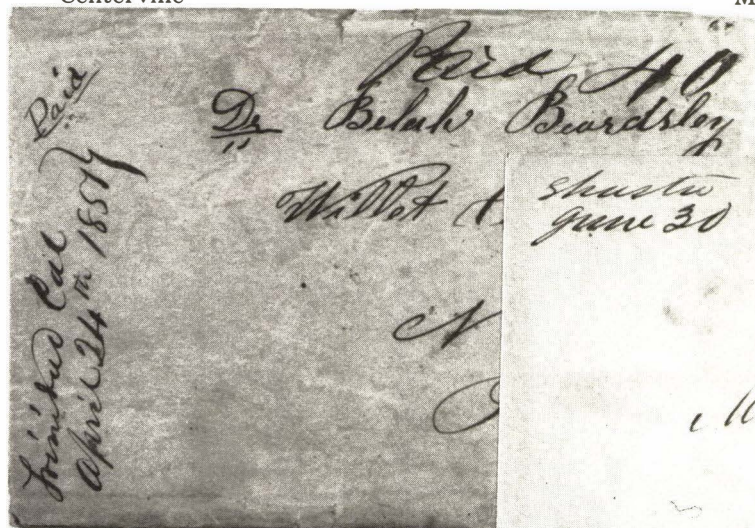 Centerville
Paid
Trinidad Cal
April 24th 1851
Paid 40
Dr Belah Beardsley
Willet
N
Shasta
June 30
M